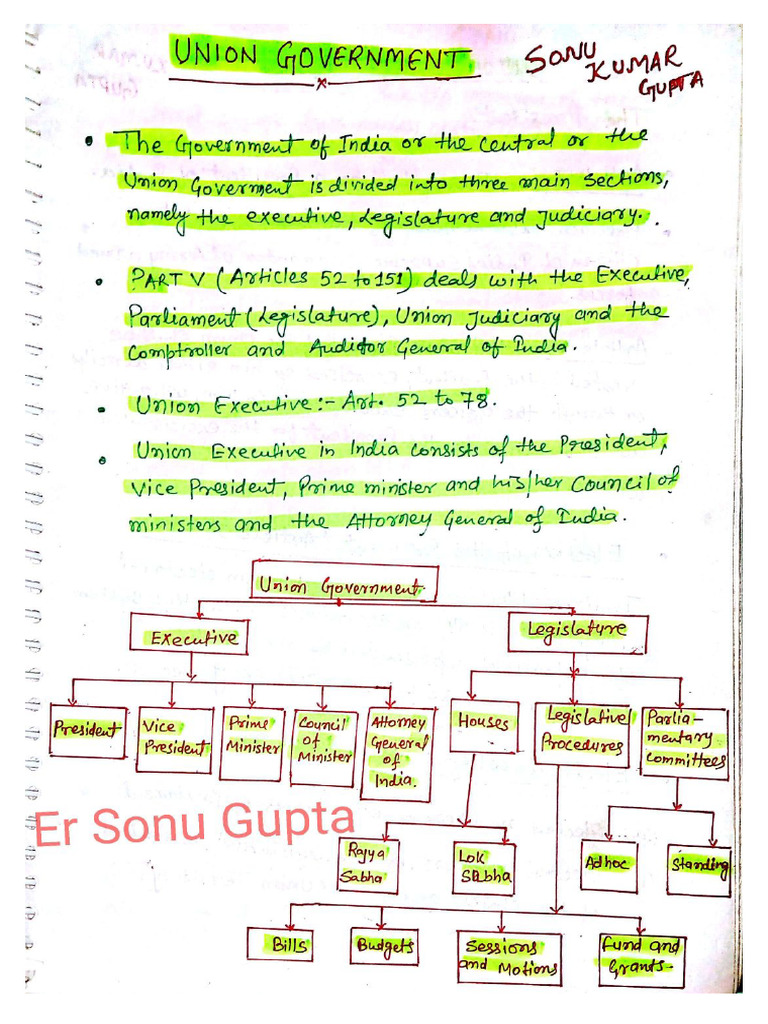 UNION GOVERNMENT.
SONU
KUMAR
GUPTA
• The Government of India or the central or the
Union Goverment is divided into three main sections,
namely the executive, Legislature and Judiciary.
• PART V (Articles 52 to 151) deals with the Executive,
Parliament (Legislature), Union Judiciary and the
Comptroller and Auditor General of India.
• Union Executive :- Art. 52 to 78.
• Union Executive in India consists of the President,
Vice President, Prime minister and his/her Council of
ministers and the Attorney General of India.
Union Government
Executive
Legislature
President
Vice
President
Prime
Minister
Council
of
Minister
Attorney
General
of
India.
Houses
Legislative
Procedures
Parlia-
mentary
Committees
Er Sonu Gupta
Rajya
Sabha
Lok
Sabha
Adhoc
Standing
Bills
Budgets
Sessions
and Motions
Fund and
Grants-